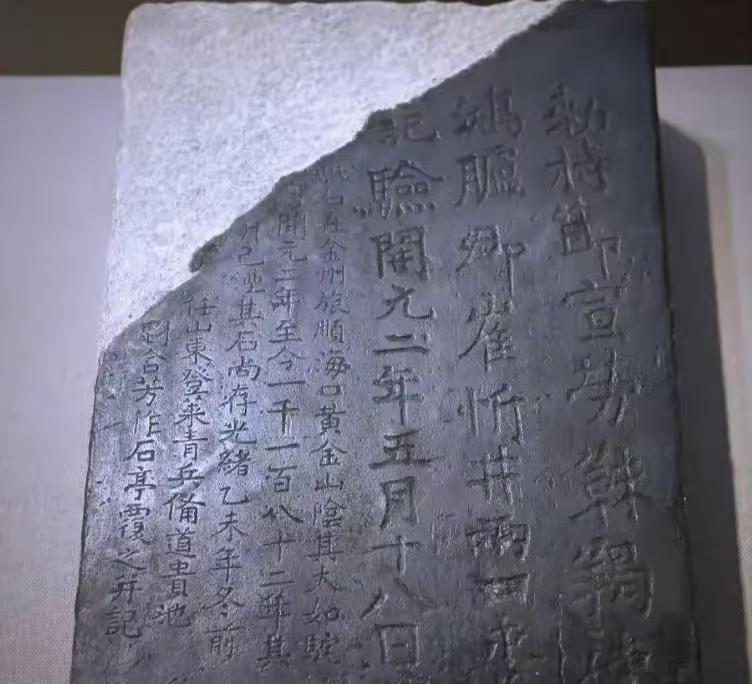 勅持節宣勞靺羯使
鴻臚卿崔忻井兩口永
記驗開元二年五月十八日
石在金州旅順海口黃金山陰其大如駝
開元二年至今一千一百八十二年其
井已湮其石尚存光緒乙未年冬前
任山東登萊青兵備道貴池
劉含芳作石亭覆之并記